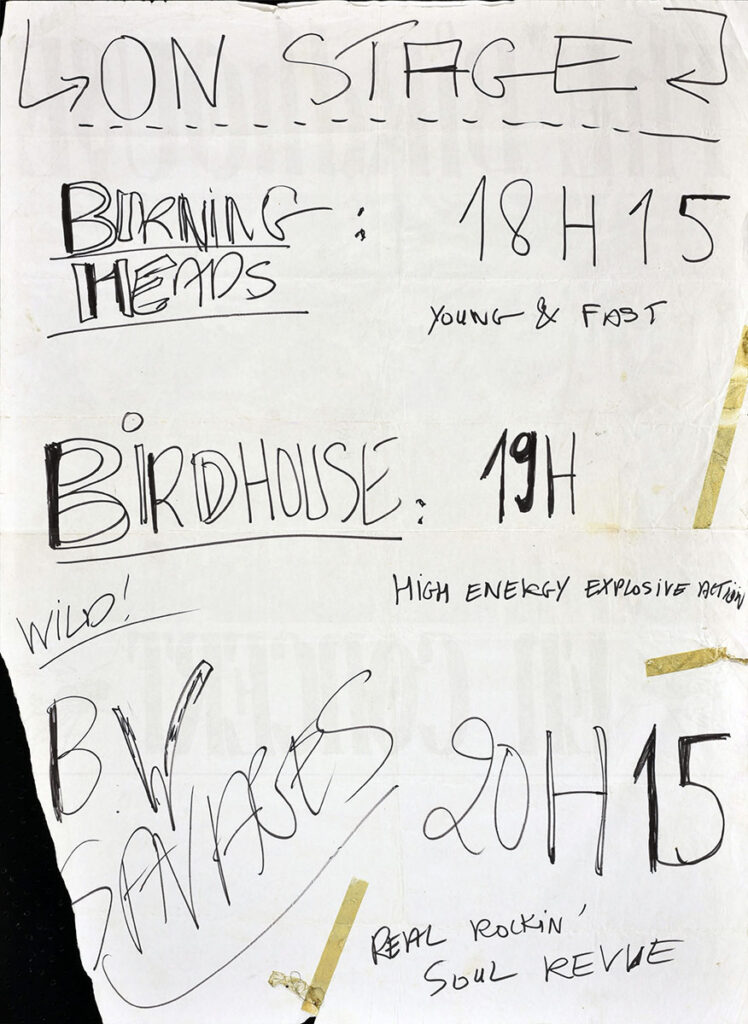 ON STAGE
BURNING : 18H15
HEADS
YOUNG & FAST
BIRDHOUSE : 19H
HIGH ENERGY EXPLOSIVE ACTION
WILD!
BW
SAVAGES 20H15
REAL ROCKIN'
SOUL REVUE